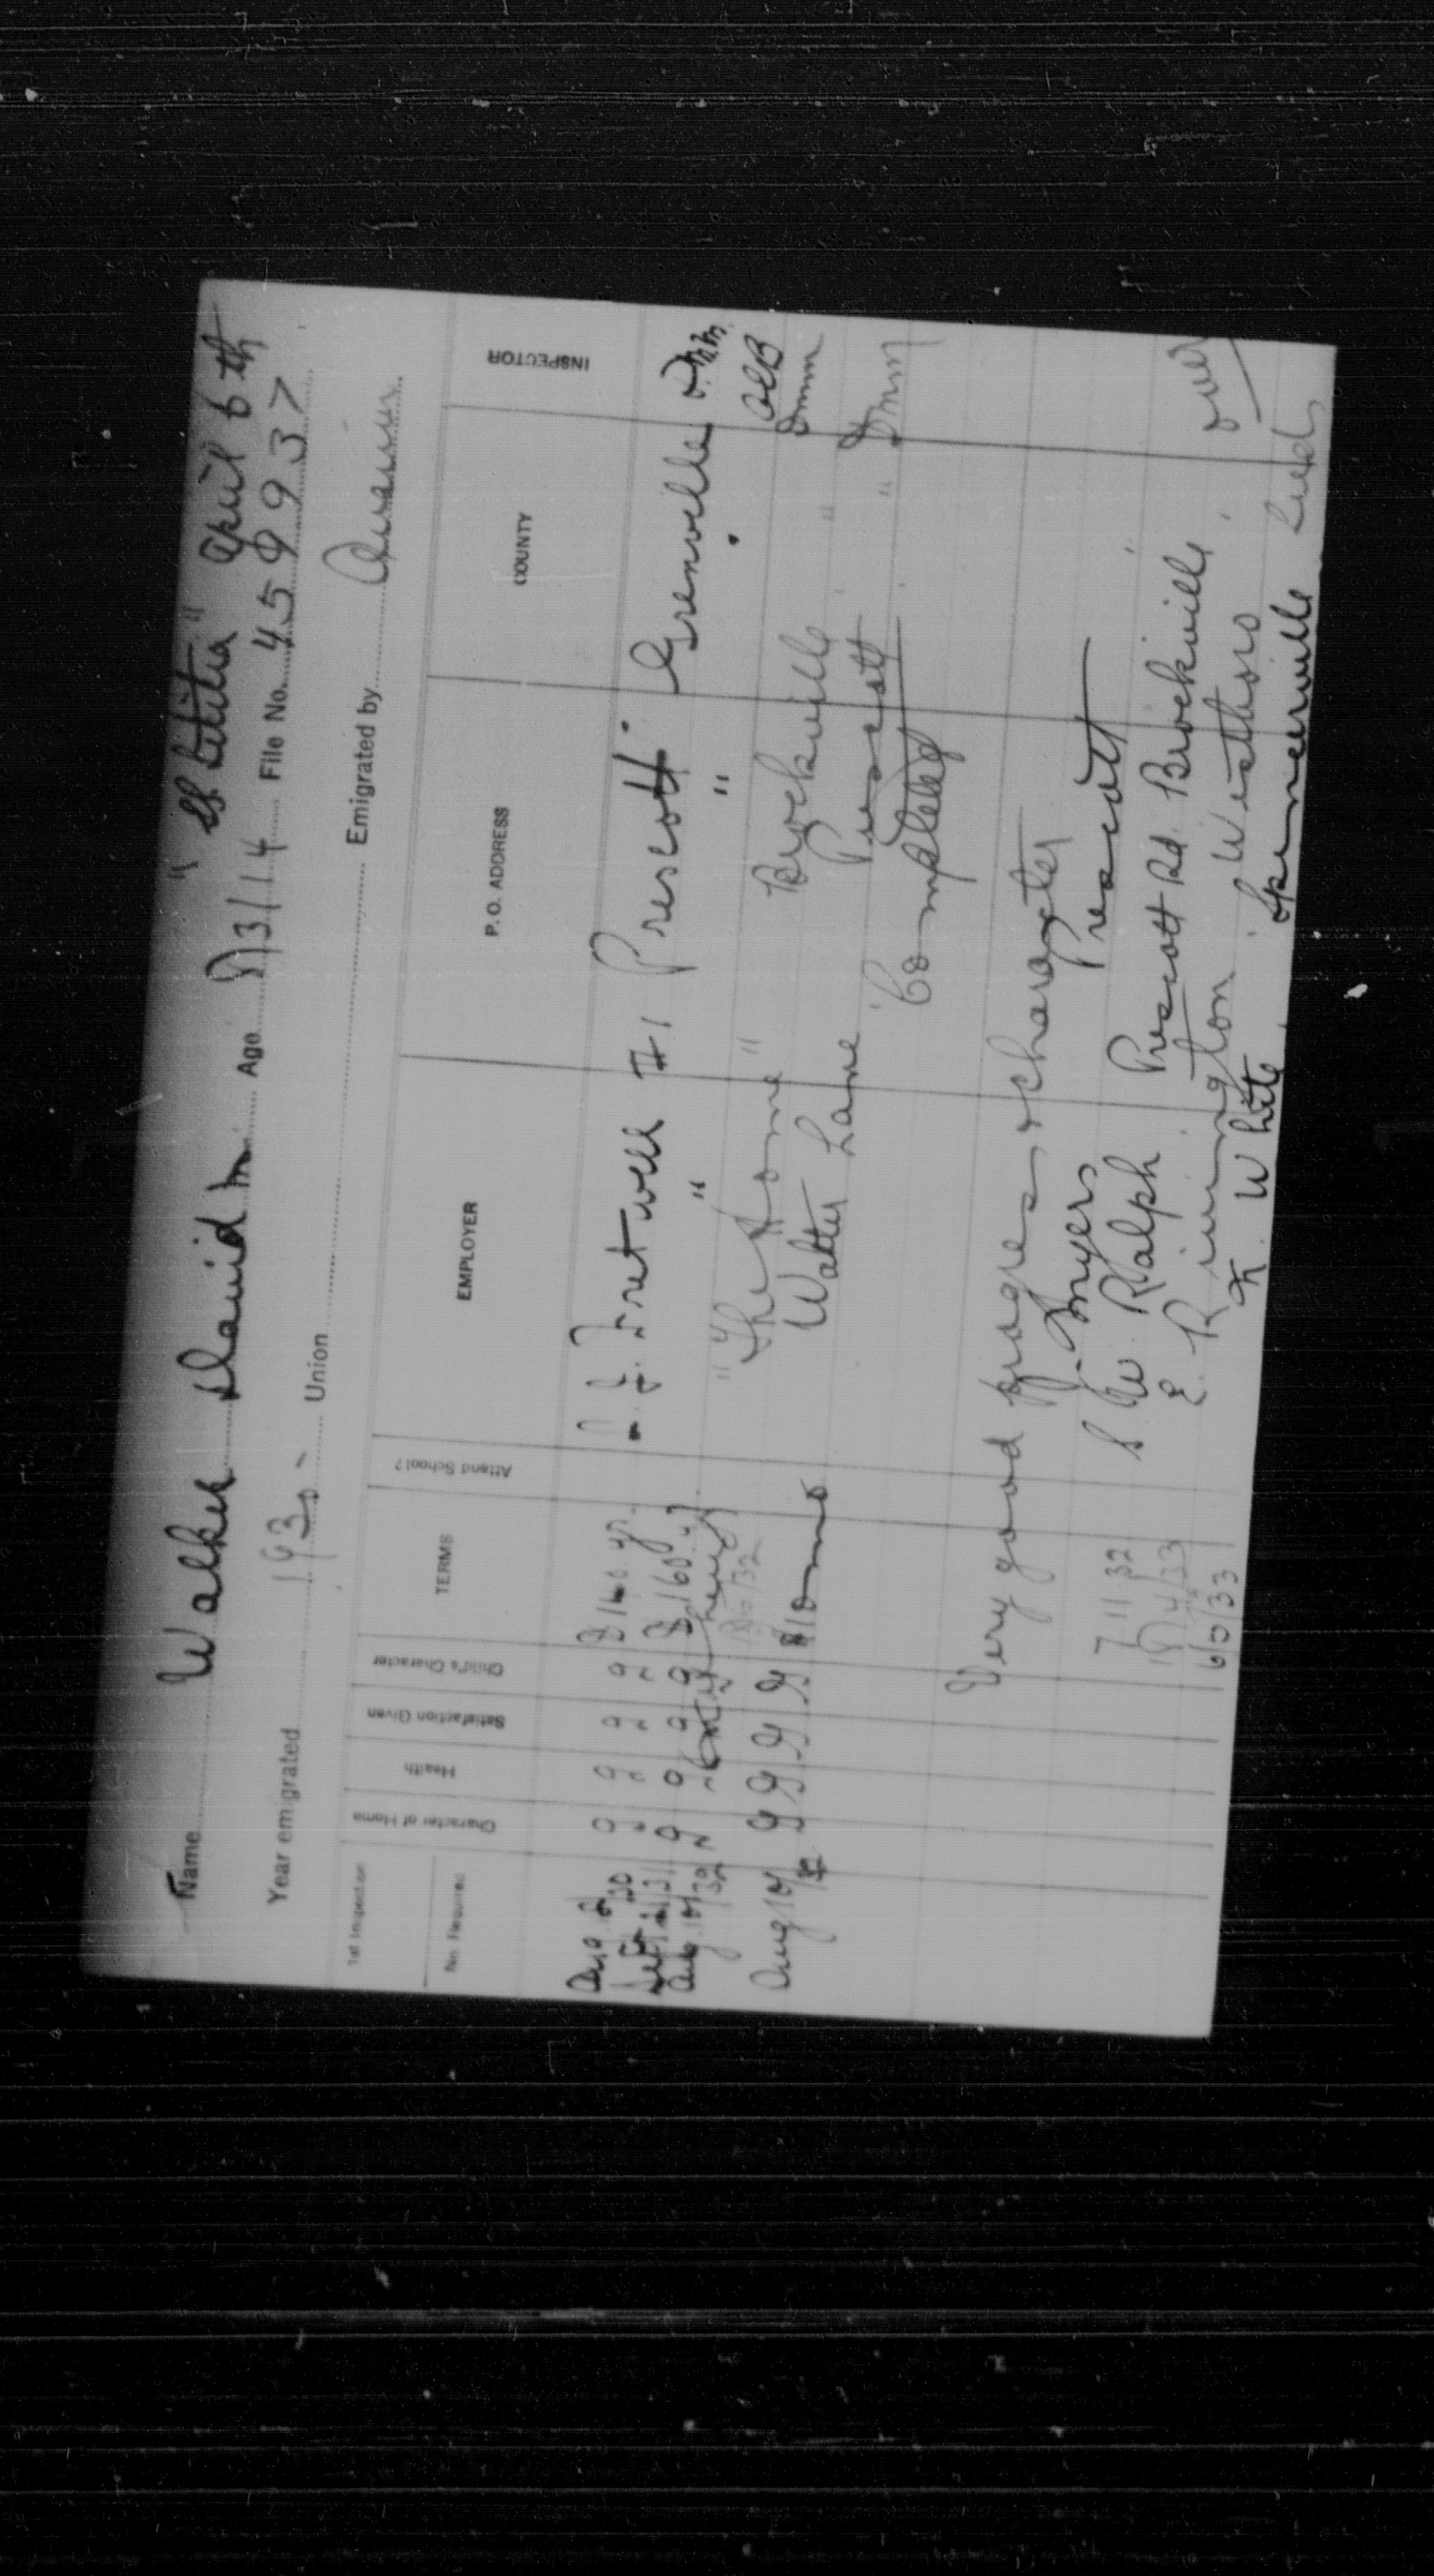 "Letitia" April 6th
Name Walker David M. Age 13/14 File No. 459937
Year emigrated 1930 - Union Emigrated by Quarrier
1st Inspection Character of Home Health Satisfaction Given Child's Character TERMS Attend School? EMPLOYER P. O. ADDRESS COUNTY INSPECTOR
No. Required
30 g g g g $ yr. Fretwell #1 Prescott Grenville
Sept 31 " " " " $160 " "
Aug 10/32 g g g g
"The Home" Brockville "
Aug 10/32 g g g g $10 mo Walter Lane Prescott "
Completed "
Very good progress & character
7 11 32 J. Myers Prescott
/4/33 S W. Ralph Prescott Rd. Brockville
6/5/33 E. Rimington
K White Spencerville
over